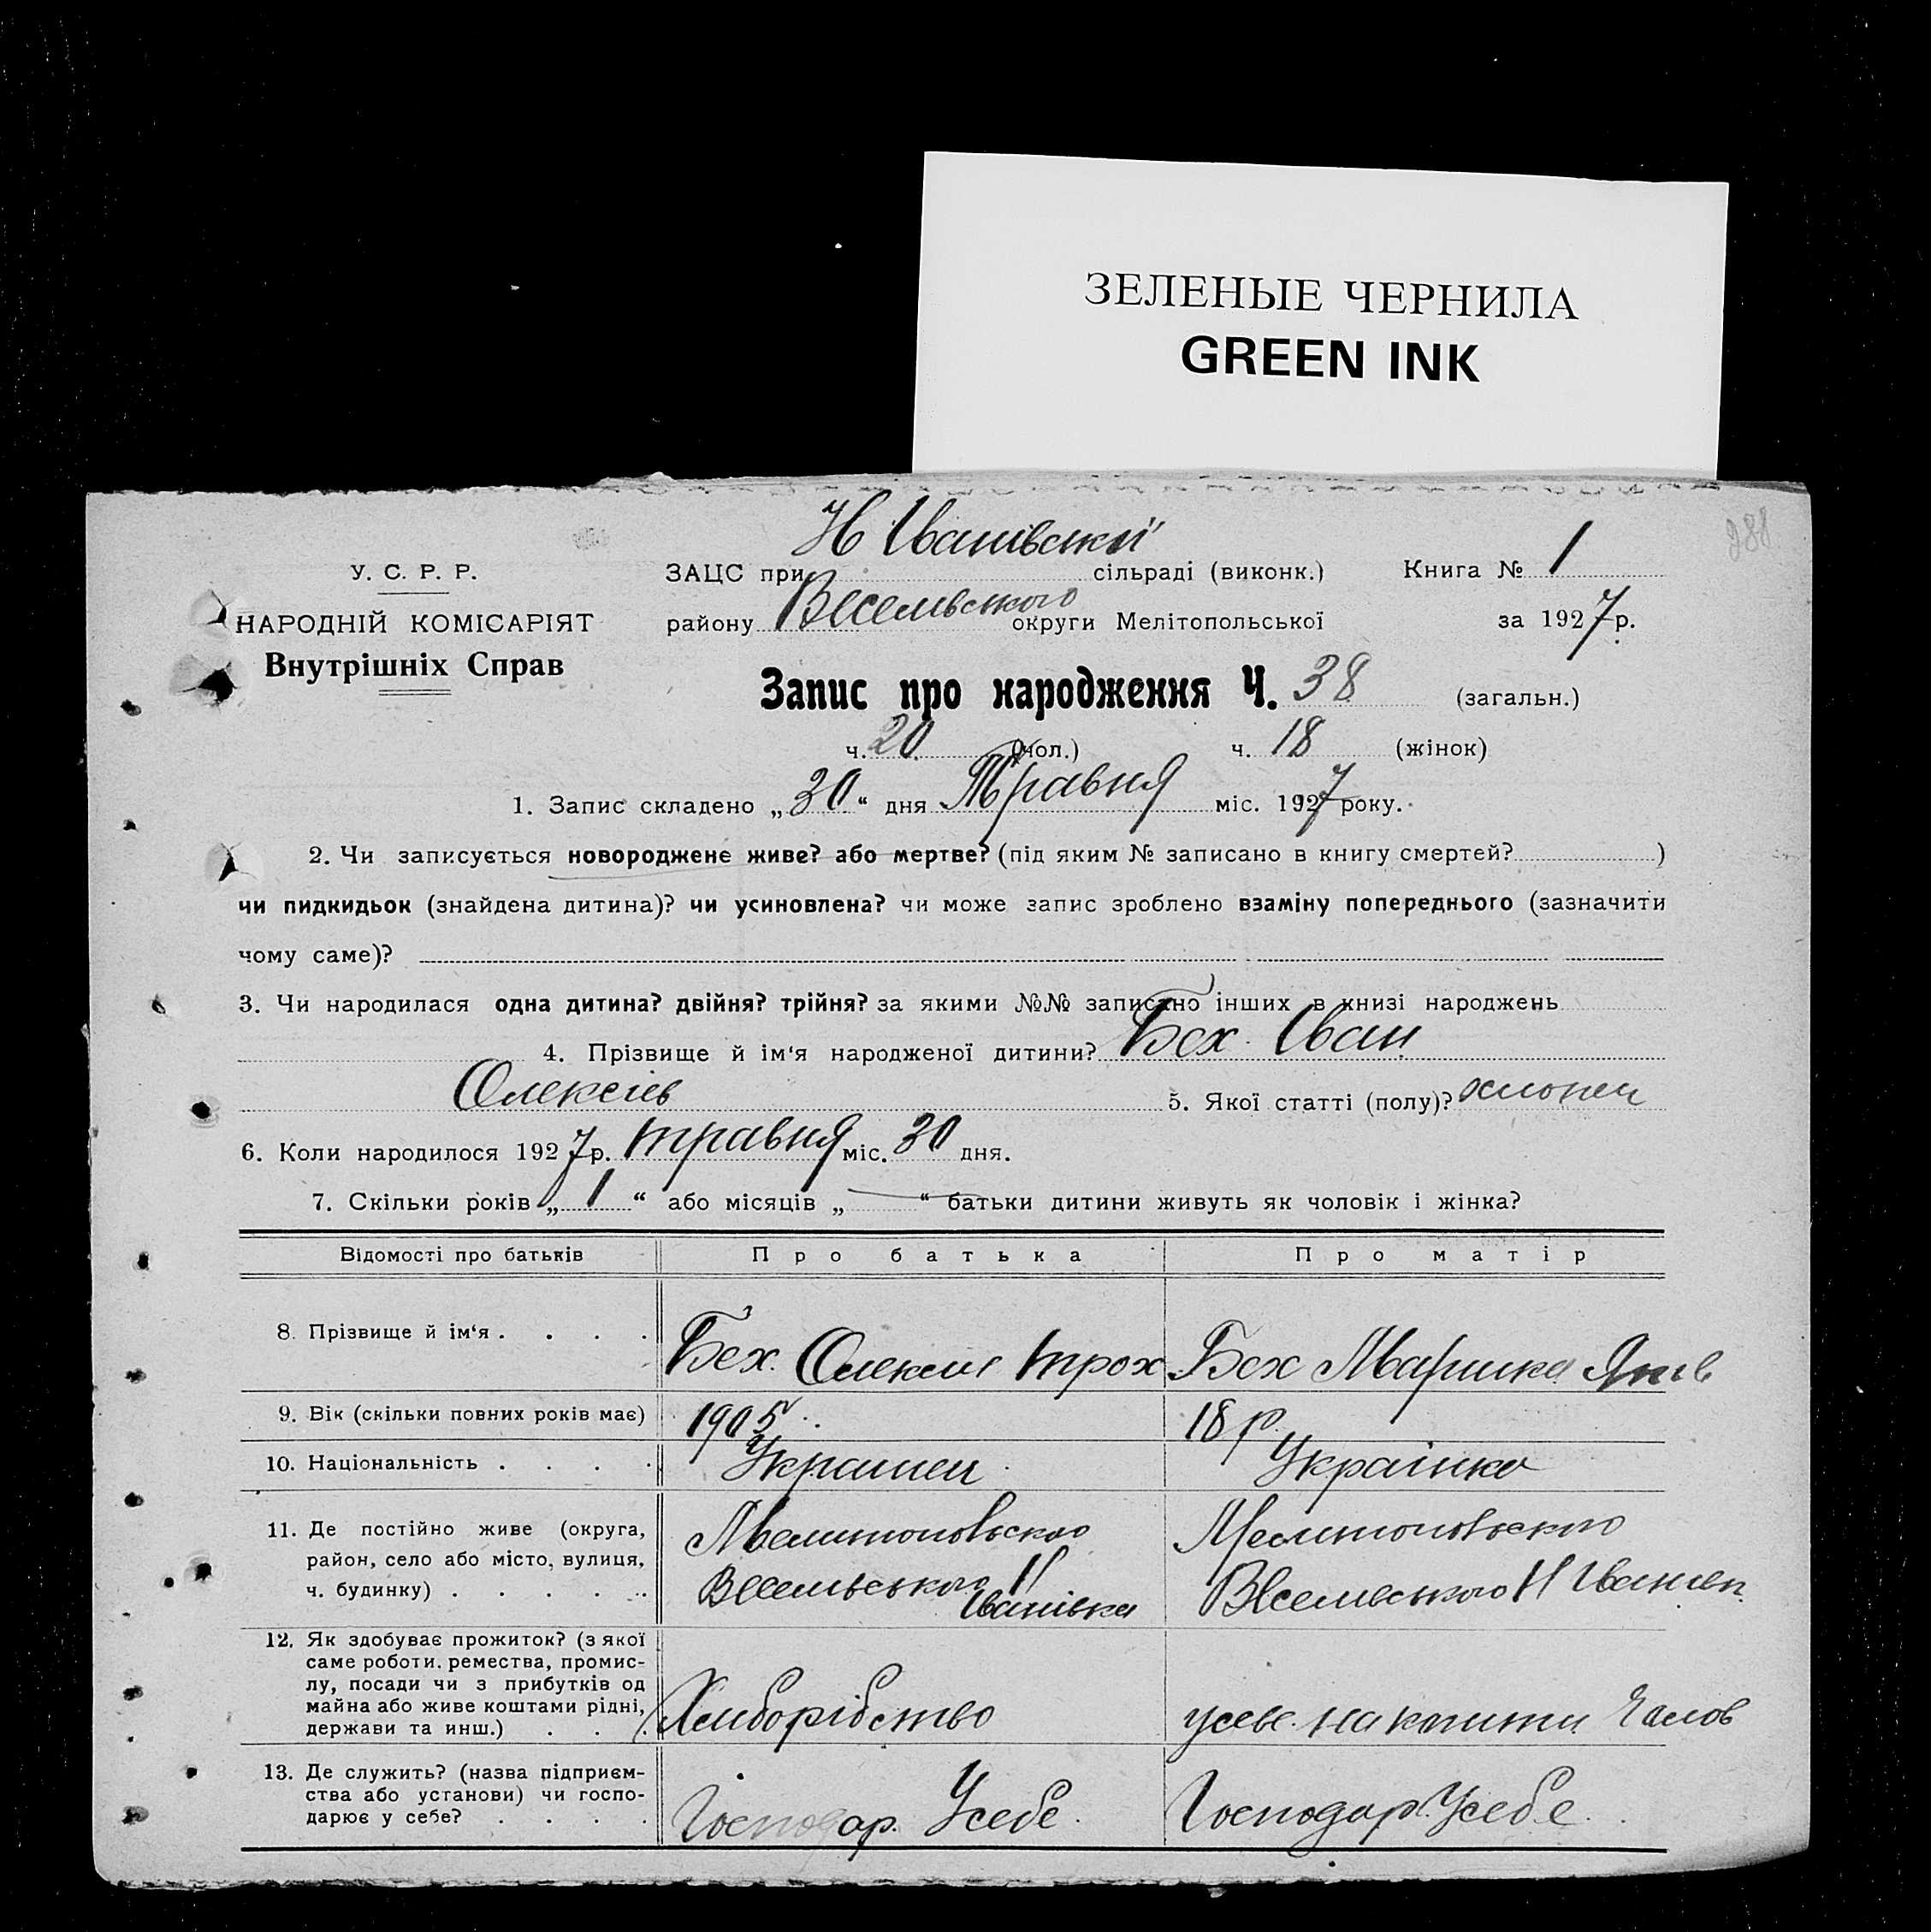 ЗЕЛЕНЫЕ ЧЕРНИЛА
GREEN INK
288
Н Іванівській
У. С. Р. Р.
ЗАЦС при сільраді (виконк.) Книга № 1
НАРОДНІЙ КОМІСАРІЯТ
Внутрішніх Справ
району Веселівського округи Мелітопольської за 1927 р.
Запис про народження Ч. 38 (загальн.)
ч. 20 (чол.) ч. 18 (жінок)
1. Запис складено „30“ дня Травня міс. 1927 року.
2. Чи записується новороджене живе? або мертве? (під яким № записано в книгу смертей? )
чи пидкидьок (знайдена дитина)? чи усиновлена? чи може запис зроблено взаміну попереднього (зазначити
чому саме)?
3. Чи народилася одна дитина? двійня? трійня? за якими №№ записано інших в книзі народжень
4. Прізвище й ім‘я народженої дитини? Бех Іван
Олексіїв 5. Якої статті (полу)? хлопец
6. Коли народилося 1927 р. травня міс. 30 дня.
7. Скільки років „1“ або місяців „ “ батьки дитини живуть як чоловік і жінка?
Відомості про батьків Про батька Про матір
8. Прізвище й ім‘я . . . . Бех Олексій Трох Бех Марика Яків
9. Вік (скільки повних років має) 1905 18 р.
10. Національність . . . . Украінец Украінка
11. Де постійно живе (округа,
район, село або місто, вулиця,
ч. будинку) . . . . .
Мелитопольского Мелитопольского
Веселівського Н Іванівка Веселівського Н Іванівк
12. Як здобуває прожиток? (з якої
саме роботи, ремества, промис-
лу, посади чи з прибутків од
майна або живе коштами рідні,
держави та инш.) . . .
Хліборібство на кошти Чолов
13. Де служить? (назва підприєм-
ства або установи) чи госпо-
дарює у себе? . . . .
Господар. Усебе. Господар. Усебе.